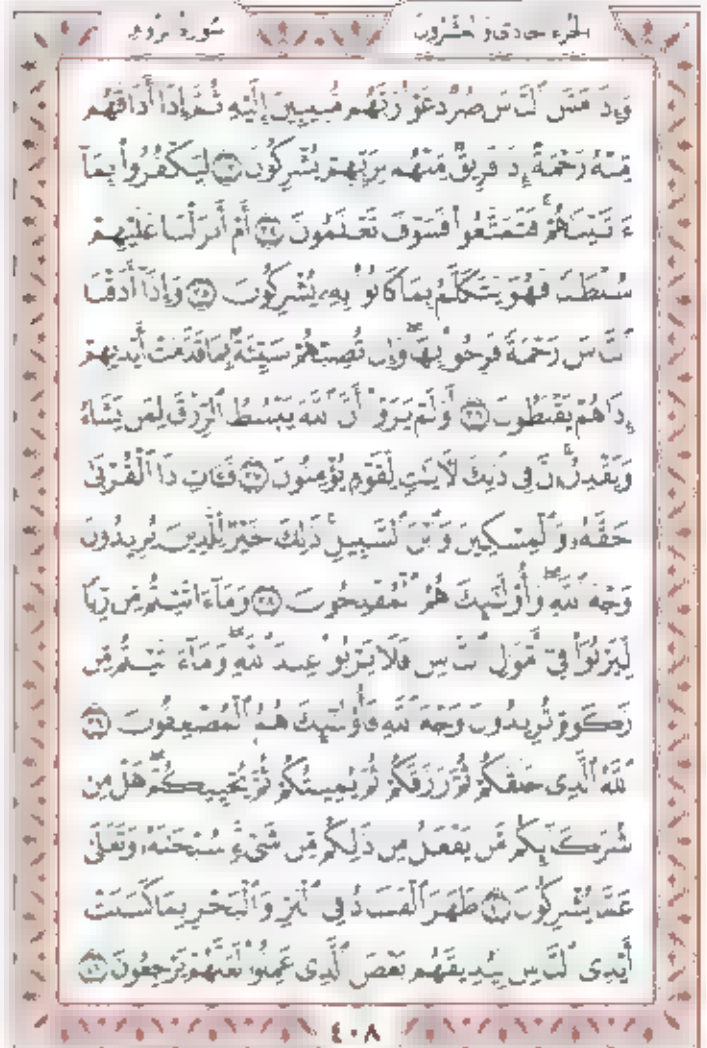 سورة الروم
الجزء الحادي والعشرون
وَإِذَا مَسَّ ٱلنَّاسَ ضُرٌّ دَعَوْا۟ رَبَّهُم مُّنِيبِينَ إِلَيْهِ ثُمَّ إِذَآ أَذَاقَهُم
مِّنْهُ رَحْمَةً إِذَا فَرِيقٌ مِّنْهُم بِرَبِّهِمْ يُشْرِكُونَ ٣٣ لِيَكْفُرُوا۟ بِمَآ
ءَاتَيْنَـٰهُمْ ۚ فَتَمَتَّعُوا۟ فَسَوْفَ تَعْلَمُونَ ٣٤ أَمْ أَنزَلْنَا عَلَيْهِمْ
سُلْطَـٰنًا فَهُوَ يَتَكَلَّمُ بِمَا كَانُوا۟ بِهِۦ يُشْرِكُونَ ٣٥ وَإِذَآ أَذَقْنَا
ٱلنَّاسَ رَحْمَةً فَرِحُوا۟ بِهَا ۖ وَإِن تُصِبْهُمْ سَيِّئَةٌۢ بِمَا قَدَّمَتْ أَيْدِيهِمْ
إِذَا هُمْ يَقْنَطُونَ ٣٦ أَوَلَمْ يَرَوْا۟ أَنَّ ٱللَّهَ يَبْسُطُ ٱلرِّزْقَ لِمَن يَشَآءُ
وَيَقْدِرُ ۚ إِنَّ فِى ذَٰلِكَ لَـَٔايَـٰتٍ لِّقَوْمٍ يُؤْمِنُونَ ٣٧ فَـَٔاتِ ذَا ٱلْقُرْبَىٰ
حَقَّهُۥ وَٱلْمِسْكِينَ وَٱبْنَ ٱلسَّبِيلِ ۚ ذَٰلِكَ خَيْرٌ لِّلَّذِينَ يُرِيدُونَ
وَجْهَ ٱللَّهِ ۖ وَأُو۟لَـٰٓئِكَ هُمُ ٱلْمُفْلِحُونَ ٣٨ وَمَآ ءَاتَيْتُم مِّن رِّبًا
لِّيَرْبُوَا۟ فِىٓ أَمْوَٰلِ ٱلنَّاسِ فَلَا يَرْبُوا۟ عِندَ ٱللَّهِ ۖ وَمَآ ءَاتَيْتُم مِّن
زَكَوٰةٍ تُرِيدُونَ وَجْهَ ٱللَّهِ فَأُو۟لَـٰٓئِكَ هُمُ ٱلْمُضْعِفُونَ ٣٩
ٱللَّهُ ٱلَّذِى خَلَقَكُمْ ثُمَّ رَزَقَكُمْ ثُمَّ يُمِيتُكُمْ ثُمَّ يُحْيِيكُمْ ۖ هَلْ مِن
شُرَكَآئِكُم مَّن يَفْعَلُ مِن ذَٰلِكُم مِّن شَىْءٍ ۚ سُبْحَـٰنَهُۥ وَتَعَـٰلَىٰ
عَمَّا يُشْرِكُونَ ٤٠ ظَهَرَ ٱلْفَسَادُ فِى ٱلْبَرِّ وَٱلْبَحْرِ بِمَا كَسَبَتْ
أَيْدِى ٱلنَّاسِ لِيُذِيقَهُم بَعْضَ ٱلَّذِى عَمِلُوا۟ لَعَلَّهُمْ يَرْجِعُونَ ٤١
٤٠٨